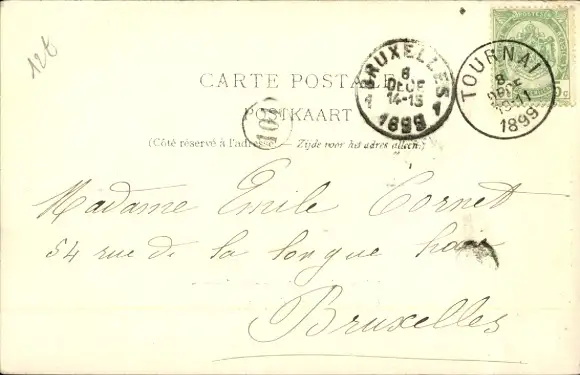 126
CARTE POSTALE
POSTKAART
(Côté réservé à l'adresse — Zijde voor het adres alleen.)
BRUXELLES
8
DECE
14-15
1 1
1899
TOURNAI
8
DECE
1899
103
Madame Emile Cornet
54 rue de la longue haie
Bruxelles